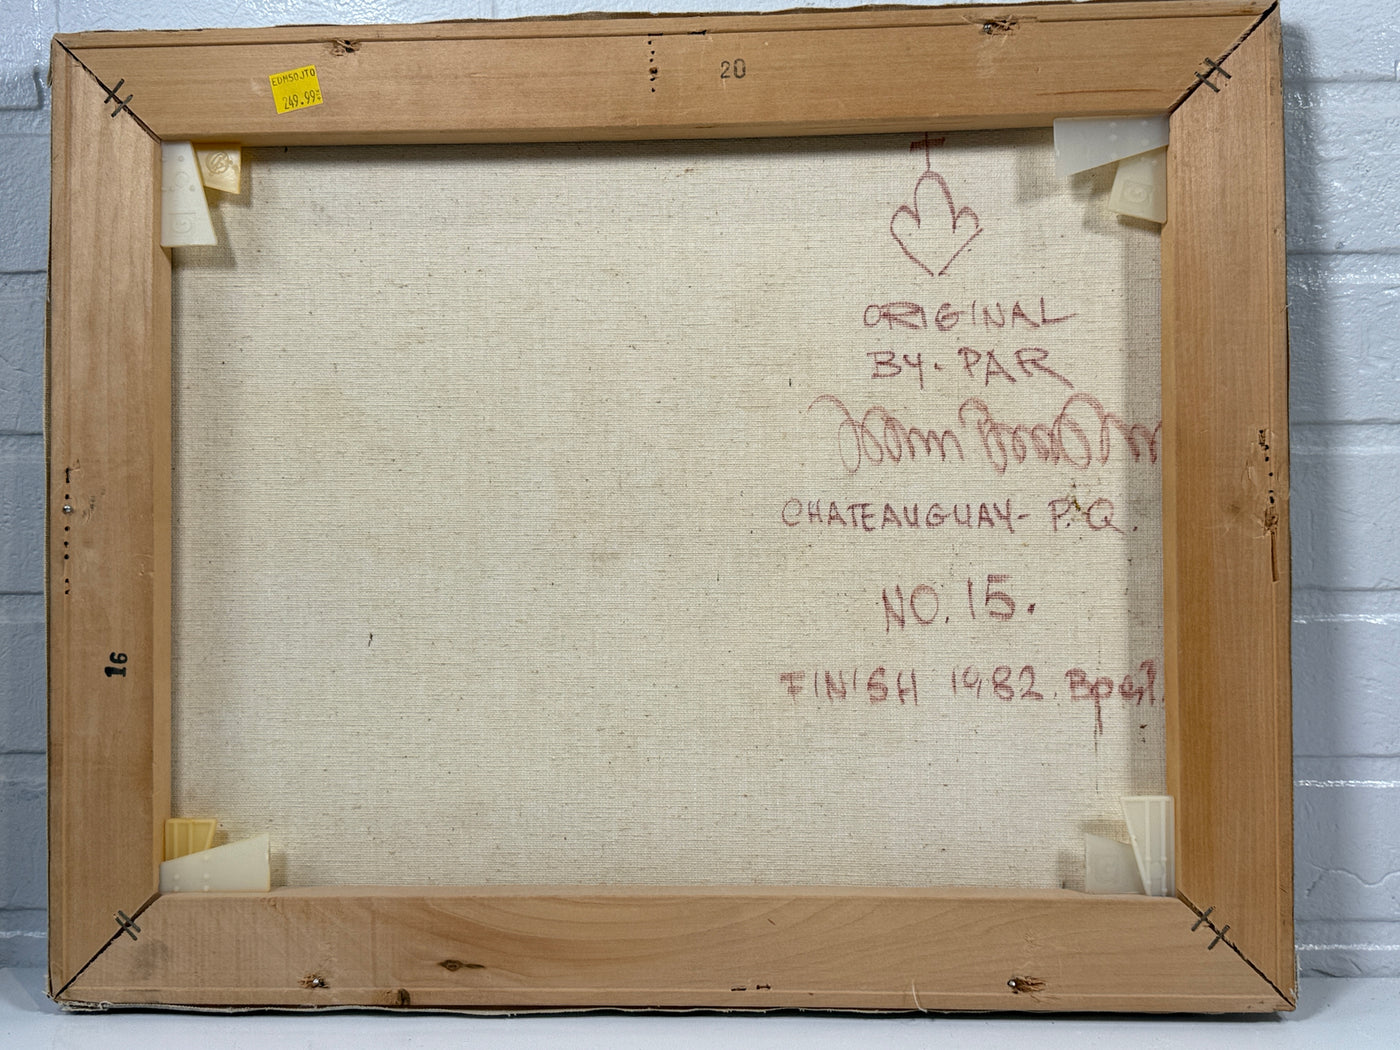 20
EDM50JTO
249.99
ORIGINAL
BY. PAR
CHATEAUGUAY - P.Q.
NO. 15.
16
FINISH 1982.